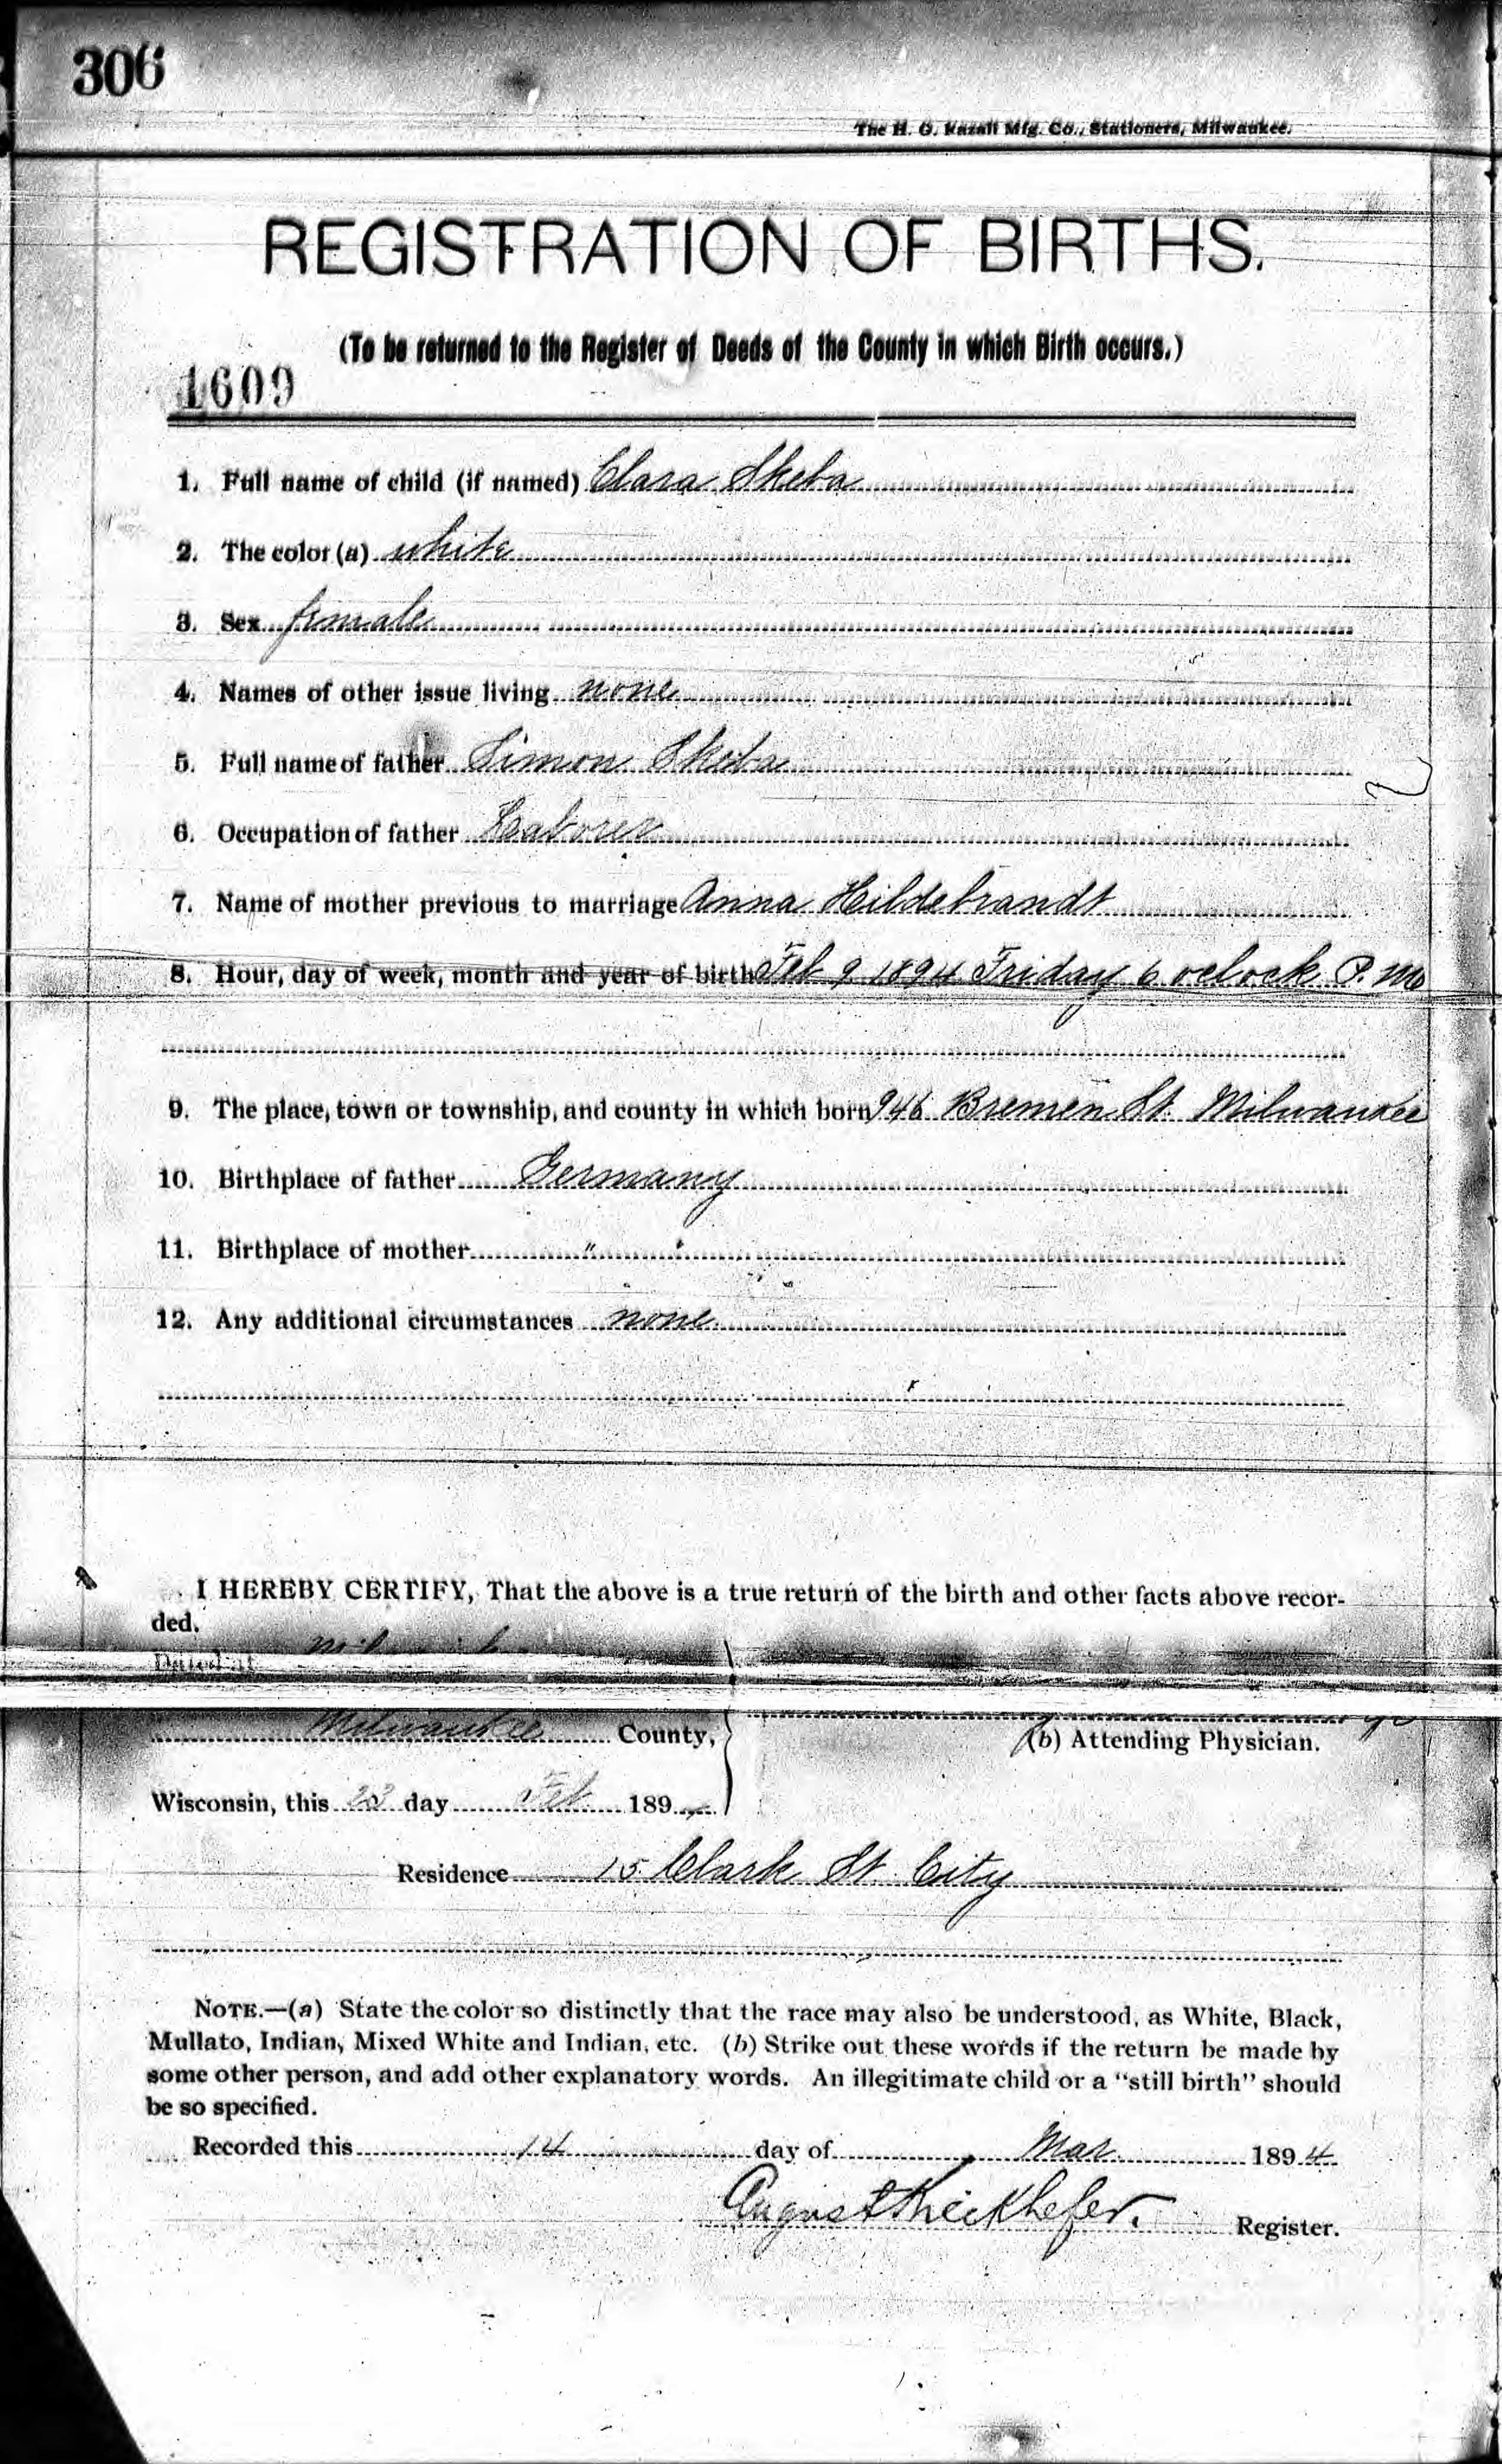 306
The H. G. Razall Mfg. Co., Stationers, Milwaukee.
REGISTRATION OF BIRTHS.
(To be returned to the Register of Deeds of the County in which Birth occurs.)
1609
1. Full name of child (if named) Clara Skeba
2. The color (a) white
3. Sex female
4. Names of other issue living none
5. Full name of father Simon Skeba
6. Occupation of father Laborer
7. Name of mother previous to marriage Anna Hildebrandt
8. Hour, day of week, month and year of birth Feb 9 1894 Friday 6 oclock P. M
9. The place, town or township, and county in which born 946 Bremen St. Milwaukee
10. Birthplace of father Germany
11. Birthplace of mother " "
12. Any additional circumstances none
I HEREBY CERTIFY, That the above is a true return of the birth and other facts above recor-
ded.
Dated at
Milwaukee County,
(b) Attending Physician.
Wisconsin, this 23 day Feb 1894
Residence 15 Clark St. City
NOTE.—(a) State the color so distinctly that the race may also be understood, as White, Black,
Mullato, Indian, Mixed White and Indian, etc. (b) Strike out these words if the return be made by
some other person, and add other explanatory words. An illegitimate child or a "still birth" should
be so specified.
Recorded this 14 day of Mar 1894
August Kieckhefer.
Register.